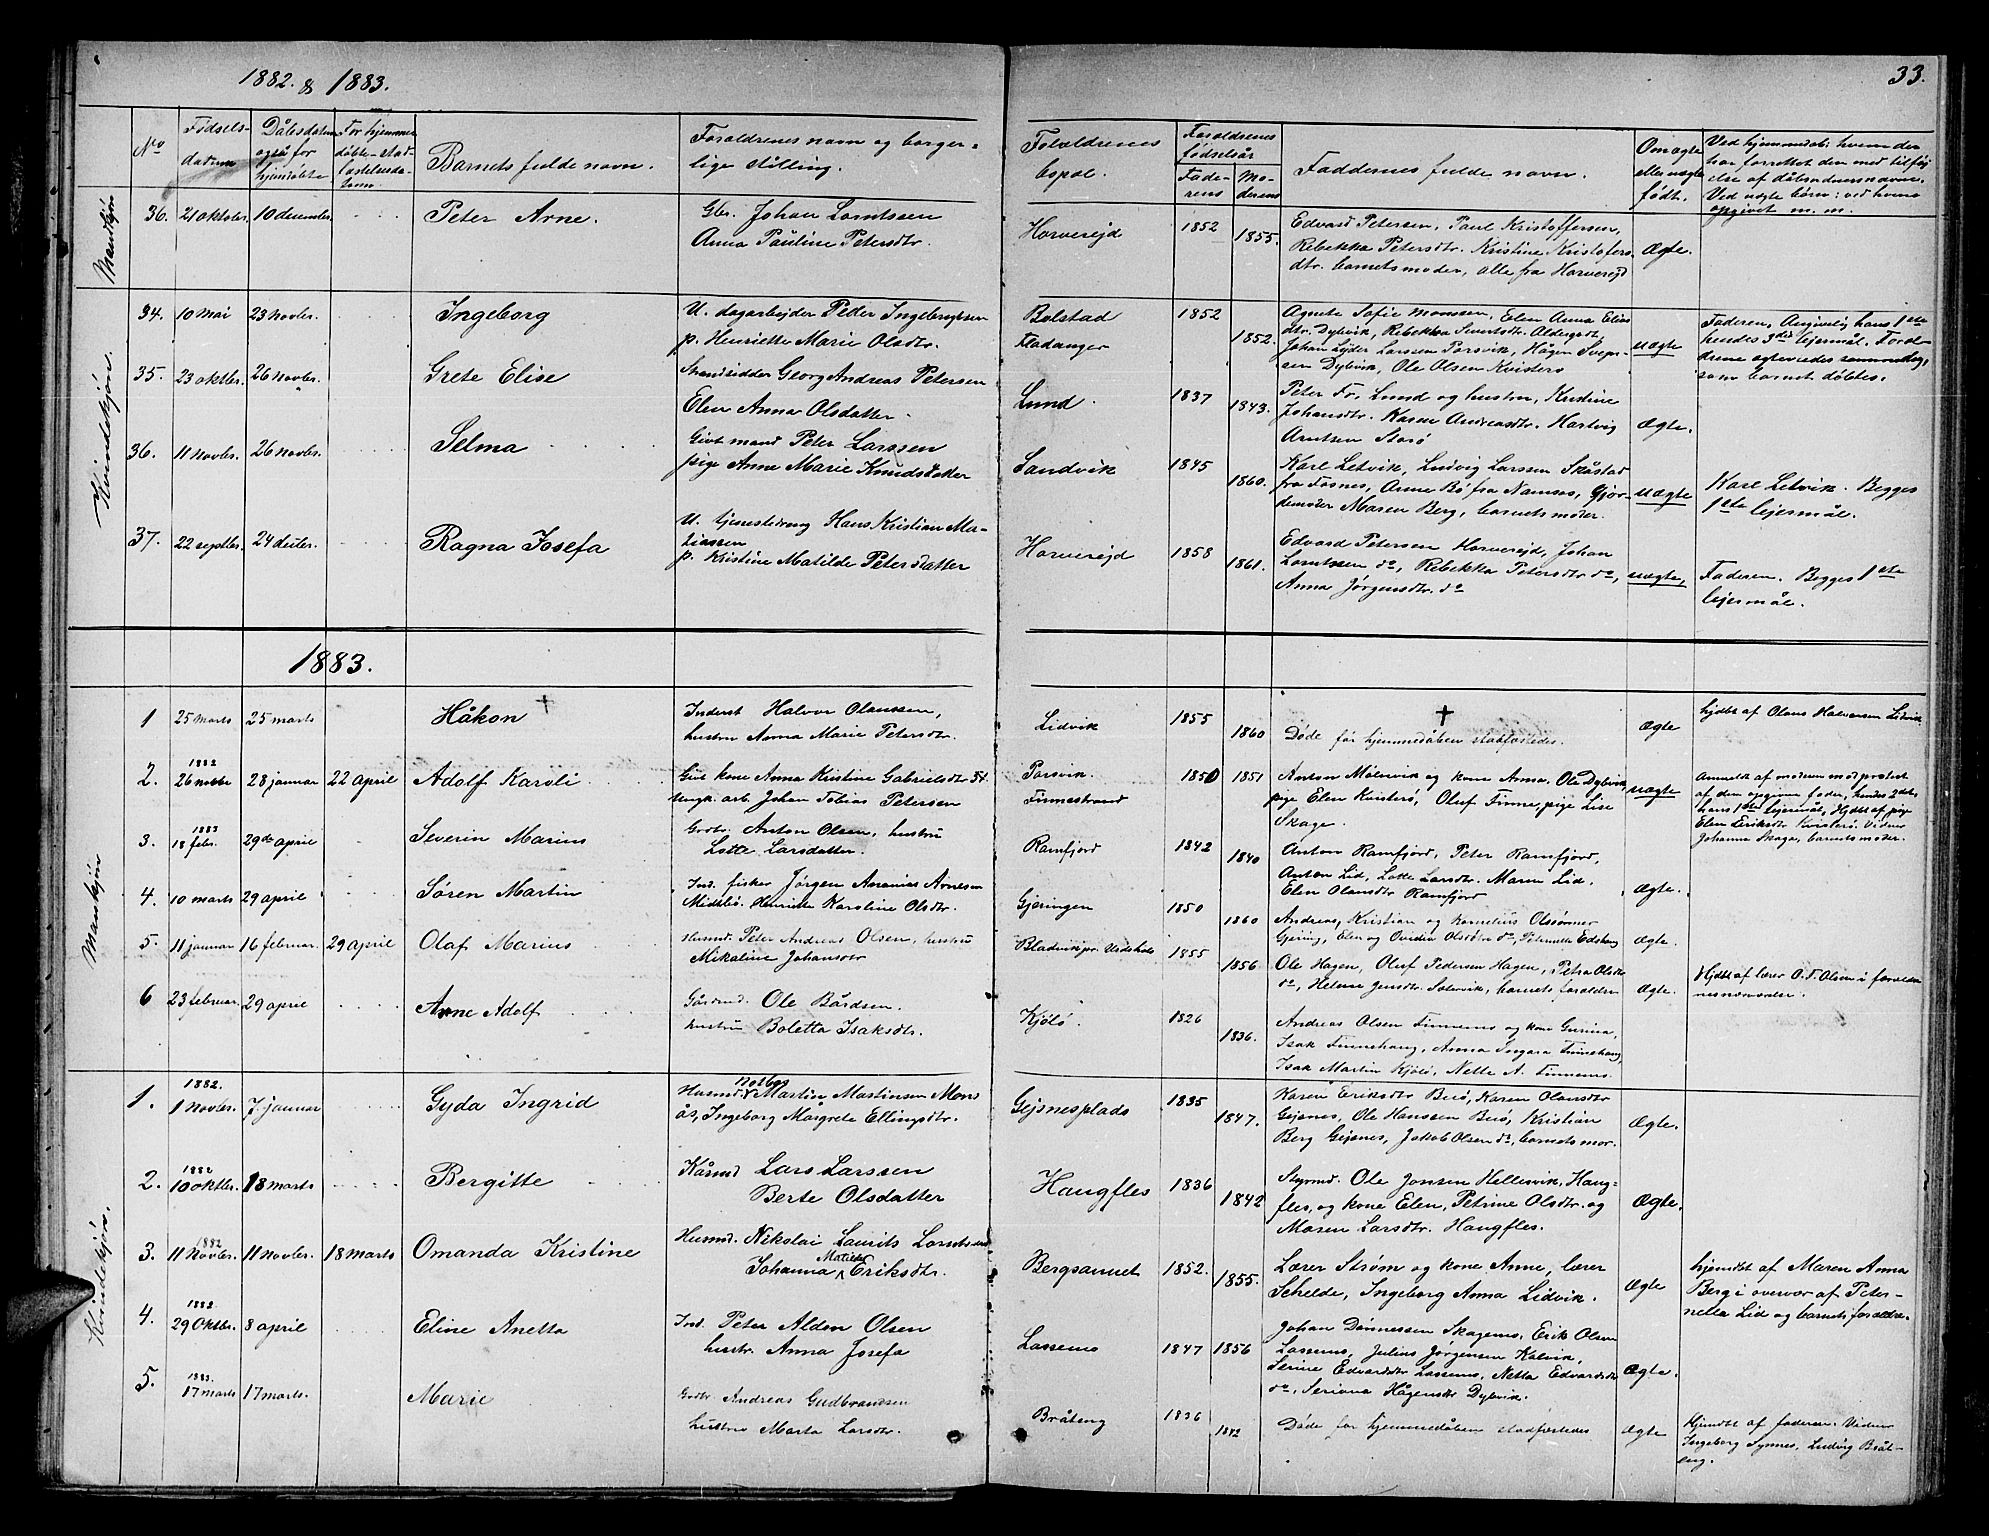 1882. & 1883.
33.
No
Fødsels-
datum
Dåbsdatum
også for
hjemdøbte
For hjemme-
døbte-stad-
fæstelsesda-
tum
Barnets fulde navn.
Forældrenes navn og borger-
lige stilling.
Forældrenes
bopæl.
Forældrenes
fødselsår
Fade-
rens
Mo-
derens
Faddernes fulde navn.
Om ægte
eller uægte
født.
Ved hjemmedåb: hvem der
har forrettet den med tilføi
else af dåbsvidnernes navne.
Ved uægte børn: ved hvem
opgivet m. m.
Mandkjøn
36. 21 oktober. 10 december. Peter Arne. Gbr. Johan Lorntssen
Anna Pauline Petersdtr.
Horverejd 1852 1855.
Edvard Petersen, Paul Kristoffersen,
Rebekka Petersdtr. Kristine Kristofers
dtr. barnets moder, alle fra Horverejd
Ægte.
Kvindekjøn.
34. 10 Mai 23 Novbr. Ingeborg U. dagarbejder Peder Ingebrigtsen
p. Henriette Marie Olsdtr.
Bolstad
Fladanger
1852 1852.
Agnete Sofie Monssen, Elen Anna Elias
dtr. Dybvik, Rebekka Sivertsdtr.
Johan Ejder Larssen Porsvik, Hågen
sen Dybvik, Ole Olsen Kvisterø
uægte
Faderen. Angivelig hans 1ste
hendes 3die lejermål. Foræl-
drene ægteviedes samme dag,
som barnet døbtes.
35. 23 oktbr. 26 Novbr. Grete Elise Strandsidder Georg Andreas Petersen
Elen Anna Olsdatter.
Lund. 1837 1843.
Peter Fr. Lund og hustru, Kristine
Johansdtr. Karen Andreasdtr. Hartvig
Arntsen Sorø
Ægte.
36. 11 Novbr. 26 Novbr. Selma Givt mand Peter Larssen
pige Anne Marie Knudsdatter
Sandvik 1845 1860.
Karl Letvik, Ludvig Larssen Skåstad
fra Fosnes, Anne Bø fra Namsos, Gjor-
demoder Maren Berg, barnets moder.
uægte
Karl Letvik. Begges
1ste lejermål.
37. 22 septbr. 24 deibr. Ragna Josefa U. tjenestedreng Hans Kristian Ma-
tiassen
p. Kristine Matilde Petersdatter
Horverejd 1858 1861.
Edvard Petersen Horverejd, Johan
Lorntssen do, Rebekka Petersdtr do,
Anna Jørgensdtr. do
uægte,
Faderen. Begges 1ste
lejermål.
1883.
Mankjøn
1 25 Marts 25 marts Håkon + Inderst Halvor Olaussen,
hustru Anna Marie Petersdtr.
Lidvik 1855 1860
+
Døde før hjemmedåben stadfæstedes.
Ægte
hjdbt af Olaus Halversen Lidvik
2. 1882
26 novbr 28 januar 22 april Adolf Karoli Givt kone Anna Kristine Gabrielsdtr 31.
Ungk. arb. Johan Tobias Petersen
Porsvik.
Finnestrand
1850 1851
Anton Mølnvik og kone Anna. Ole Dybvik
pige Elen Kvisterø, Oluf Finne, pige Lise
Skage.
uægte
Anmeldt af modrum mod protest
af den opgivne fader, hendes 2det,
hans 1ste lejermål, Hjdbt af pige
Elen Eriksdtr Kvisterø. Vidner
Johanna Skage, barnets moder.
3. 1883
18 febr. 29de april Severin Marius Grdbr. Anton Olsen, hustru
Lotte Larsdatter.
Ramfjord 1842 1840
Anton Ramfjord, Peter Ramfjord,
Anton Lid, Lotte Larsdtr. Maren Lid.
Elen Olausdtr Ramfjord
Ægte.
4. 10 marts 29 april Søren Martin Ind. fisker Jørgen Ananias Arnesen
Midtbø. Henriette Karoline Olsdtr.
Gjeringen 1850 1860
Andreas, Kristian og Kornelius Olssønner
Gjering, Elen og Ovidia Olsdtre do, Peternelle Edshaug
Ægte.
5. 11 januar 16 februar. 29 april Olaf Marius Husmd. Peter Andreas Olsen, hustru
Mikaline Johansdtr
1855 1856.
Ole Hagen, Oluf Pedersen Hagen, Petra Olsdtr
do, Helene Jensdtr. Solsvik, barnets forældre
Ægte.
Hjdbt af lærer O. T. Olsen i foræld
nes nærværelse.
6 23 februar. 29 april Arne Adolf Gårdmd. Ole Bårdsen
hustru Boletta Isaksdtr.
Kjølø. 1826 1836.
Andreas Olsen Finnemo og kone Gurina,
Isak Finnehaug, Anna Ingara Finnehaug
Isak Martin Kjølø, Nette A. Finnemo.
Kvindekjøn.
1. 1882.
1 Novbr. 7. januar Gyda Ingrid Husmd. Martin Martinsen Mons
ås, Ingeborg Margrete Ellingsdtr.
Gejsnesplads 1835 1847.
Karen Eriksdtr Buø, Karen Olausdtr
Gejsnes, Ole Hanssen Buø, Kristian
Berg Gejsnes, Jakob Olsen do, barnets mor.
Ægte.
2. 1882
10 oktbr. 18 marts Bergitte Kårmd Lars Larssen
Berte Olsdatter
Haugfles 1836 1842
Styrmd. Ole Jonsen Hellesvik, Haug-
fles, og kone Elen, Petrine Olsdtr. og
Maren Larsdtr. Haugfles.
Ægte.
3. 1882
11 Novbr. 11 Novbr. 18 marts Omanda Kristine Husmd. Nikolai Laurits Lorntssen
Johanna Matilde Eriksdtr.
Bergsaunet 1852. 1855.
Lærer Strøm og kone Anne, lærer
Schelde, Ingeborg Anna Lidvik.
Ægte
hjemdbt af Maren Anna
Berg i overvær af Peter-
nella Lid og barnets forældre.
4. 1882
29 Oktbr. 8 april Eline Anetta Ind. Peter Alden Olsen
hustr. Anna Josefa
Lassemo 1847 1856
Johan Dønnessen Skagemo, Erik Olsen
Lassemo, Julius Jørgensen Kalvik,
Serine Edvardsdtr Lassemo, Netta Edvardsdtr
do, Seriana Hågensdtr Dybvik.
Ægte.
5. 1883.
17 marts 17 marts. Marie Grdbr Andreas Gudbrandsen
hustru Marta Larsdtr.
Bråteng 1836 1842
Døde før hjemmedåben stadfæstedes
Ægte
Hjemdbt af faderen. Vidner
Ingeborg Synnes, Ludvig Bråt-
eng.